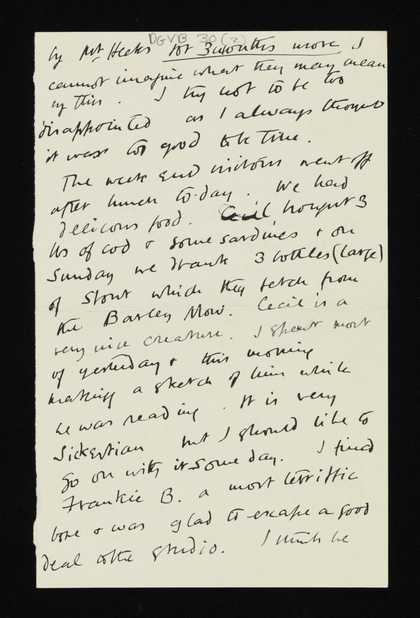 DGVB 30 (2)
by Mr Heeks for 3 months more I
cannot imagine what they may mean
by this. I try not to be too
disappointed as I always thought
it was too good to be true.
The week end visitors went off
after lunch to-day. We had
delicious food. Cecil brought 3
lbs of cod & some sardines & on
Sunday we drank 3 bottles (large)
of Stout which they fetch from
the Barley Mow. Cecil is a
very nice creature. I spent most
of yesterday & this morning
making a sketch of him while
he was reading. It is very
Sickertian but I should like to
go on with it some day. I find
Frankie B. a most terrific
bore & was glad to escape a good
deal to the studio. I think he